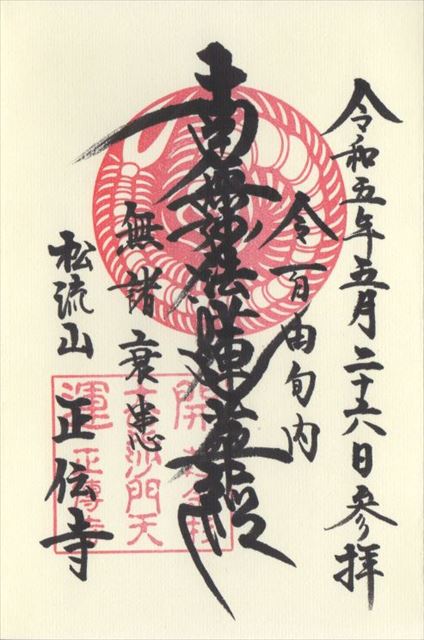 令和五年五月二十六日参拝
令百由旬内
南無妙法蓮華経
無諸衰患
松流山
正伝寺
開
沙門天
運正傳寺